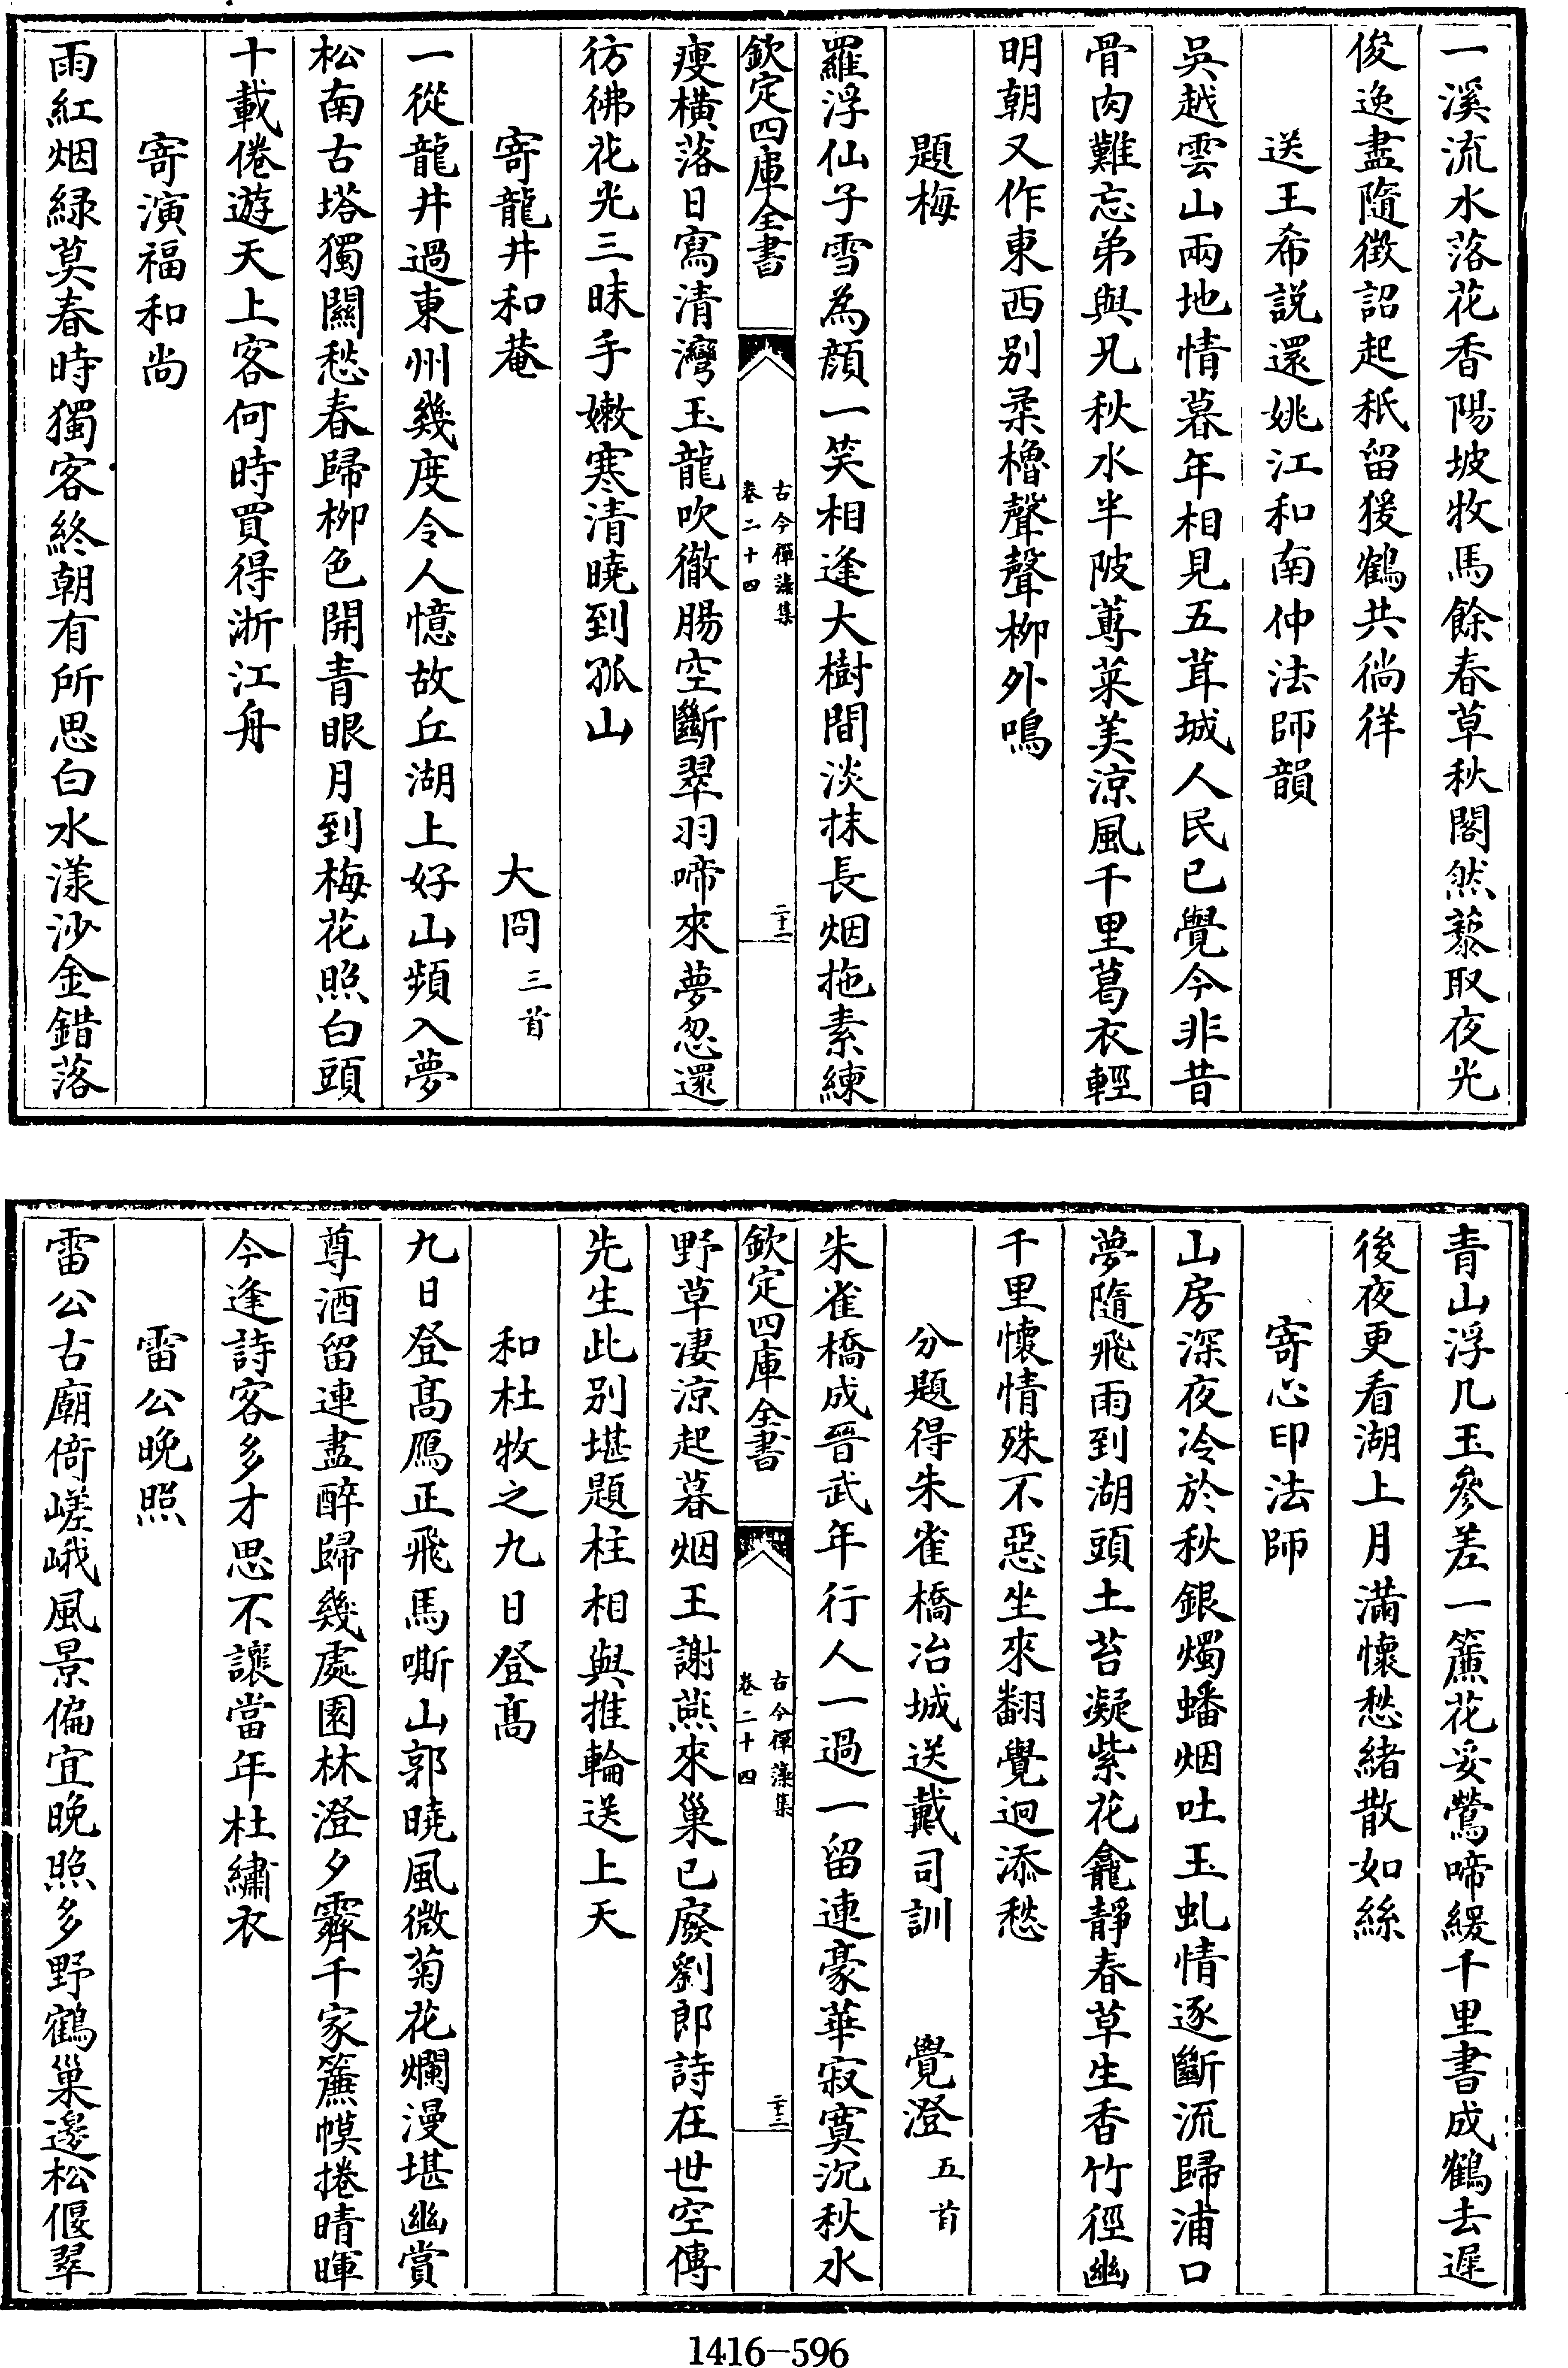 一溪流水落花香陽坡牧馬餘春草秋閣然藜取夜光
俊逸盡隨徵詔起秖留猨鶴共徜徉
送王希説還姚江和南仲法師韻
吳越雲山兩地情暮年相見五茸城人民已覺今非昔
骨肉難忘弟與兄秋水半陂蓴菜美涼風千里葛衣輕
明朝又作東西别柔櫓聲聲柳外鳴
題梅
羅浮仙子雪為顔一笑相逢大樹間淡抹長烟拖素練
欽定四庫全書
古今禪藻集
卷二十四
二十二
瘦横落日寫清灣玉龍吹徹腸空斷翠羽啼來夢忽還
彷彿花光三昧手嫩寒清曉到孤山
寄龍井和菴
大同三首
一從龍井過東州幾度令人憶故丘湖上好山頻入夢
松南古塔獨關愁春歸柳色開青眼月到梅花照白頭
十載倦遊天上客何時買得浙江舟
寄演福和尚
雨紅烟緑莫春時獨客終朝有所思白水漾沙金錯落
青山浮几玉參差一簾花妥鶯啼緩千里書成鶴去遲
後夜更看湖上月滿懷愁緒散如絲
寄心印法師
山房深夜冷於秋銀燭蟠烟吐玉虬情逐斷流歸浦口
夢隨飛雨到湖頭土苔凝紫花龕靜春草生香竹徑幽
千里懷情殊不惡坐來翻覺迥添愁
分題得朱雀橋冶城送戴司訓
覺澄五首
朱雀橋成晉武年行人一過一留連豪華寂寞沉秋水
欽定四庫全書
古今禪藻集
卷二十四
二十三
野草凄涼起暮烟王謝燕來巢已廢劉郎詩在世空傳
先生此别堪題柱相與推輪送上天
和杜牧之九日登髙
九日登髙鴈正飛馬嘶山郭曉風微菊花爛漫堪幽賞
尊酒留連盡醉歸幾處園林澄夕霽千家簾幙捲晴暉
今逢詩客多才思不讓當年杜繡衣
雷公晚照
雷公古廟倚嵯峨風景偏宜晚照多野鶴巢邊松偃翠
1416-596